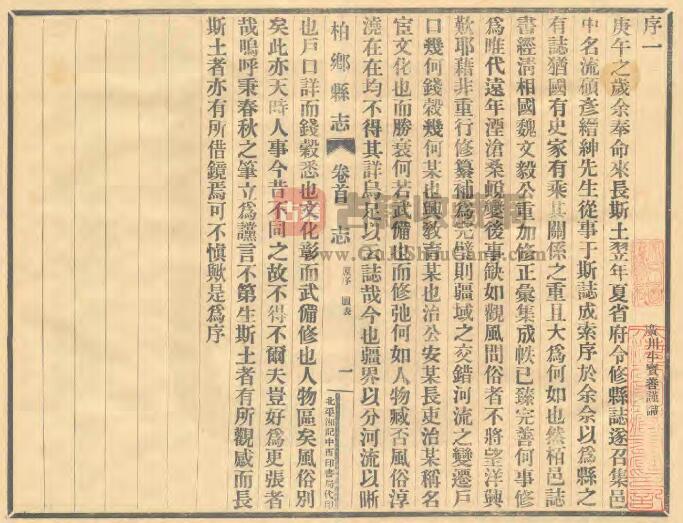 序一
庚午之歲余奉命來長斯土翌年夏省府令修縣誌遂召集邑
中名流碩彥縉紳先生從事于斯誌成索序於余余以爲縣之
有誌猶國有史家有乘其關係之重且大爲何如也然柏邑誌
書經清相國魏文毅公重加修正彙集成帙已臻完善何事修
爲唯代遠年湮滄桑蛻變後事缺如觀風問俗者不將望洋興
歎耶藉非重行修纂補爲完璧則疆域之交錯河流之變遷戶
口幾何錢穀幾何某也興敎育某也治公安某長吏治某稱名
宦文化也而勝衰何若武備也而修弛何如人物臧否風俗淳
澆在在均不得其詳烏足以云誌哉今也疆界以分河流以晰
柏鄉縣志 卷首 志 原序 圖表 一
北平湘記中西印書局代印
也戶口詳而錢穀悉也文化彰而武備修也人物區矣風俗別
矣此亦天時人事今昔不同之故不得不爾夫豈好爲更張者
哉嗚呼秉春秋之筆立爲讜言不第生斯土者有所觀感而長
斯土者亦有所借鏡焉可不愼歟是爲序
古籍
www.OnlShouGang.com